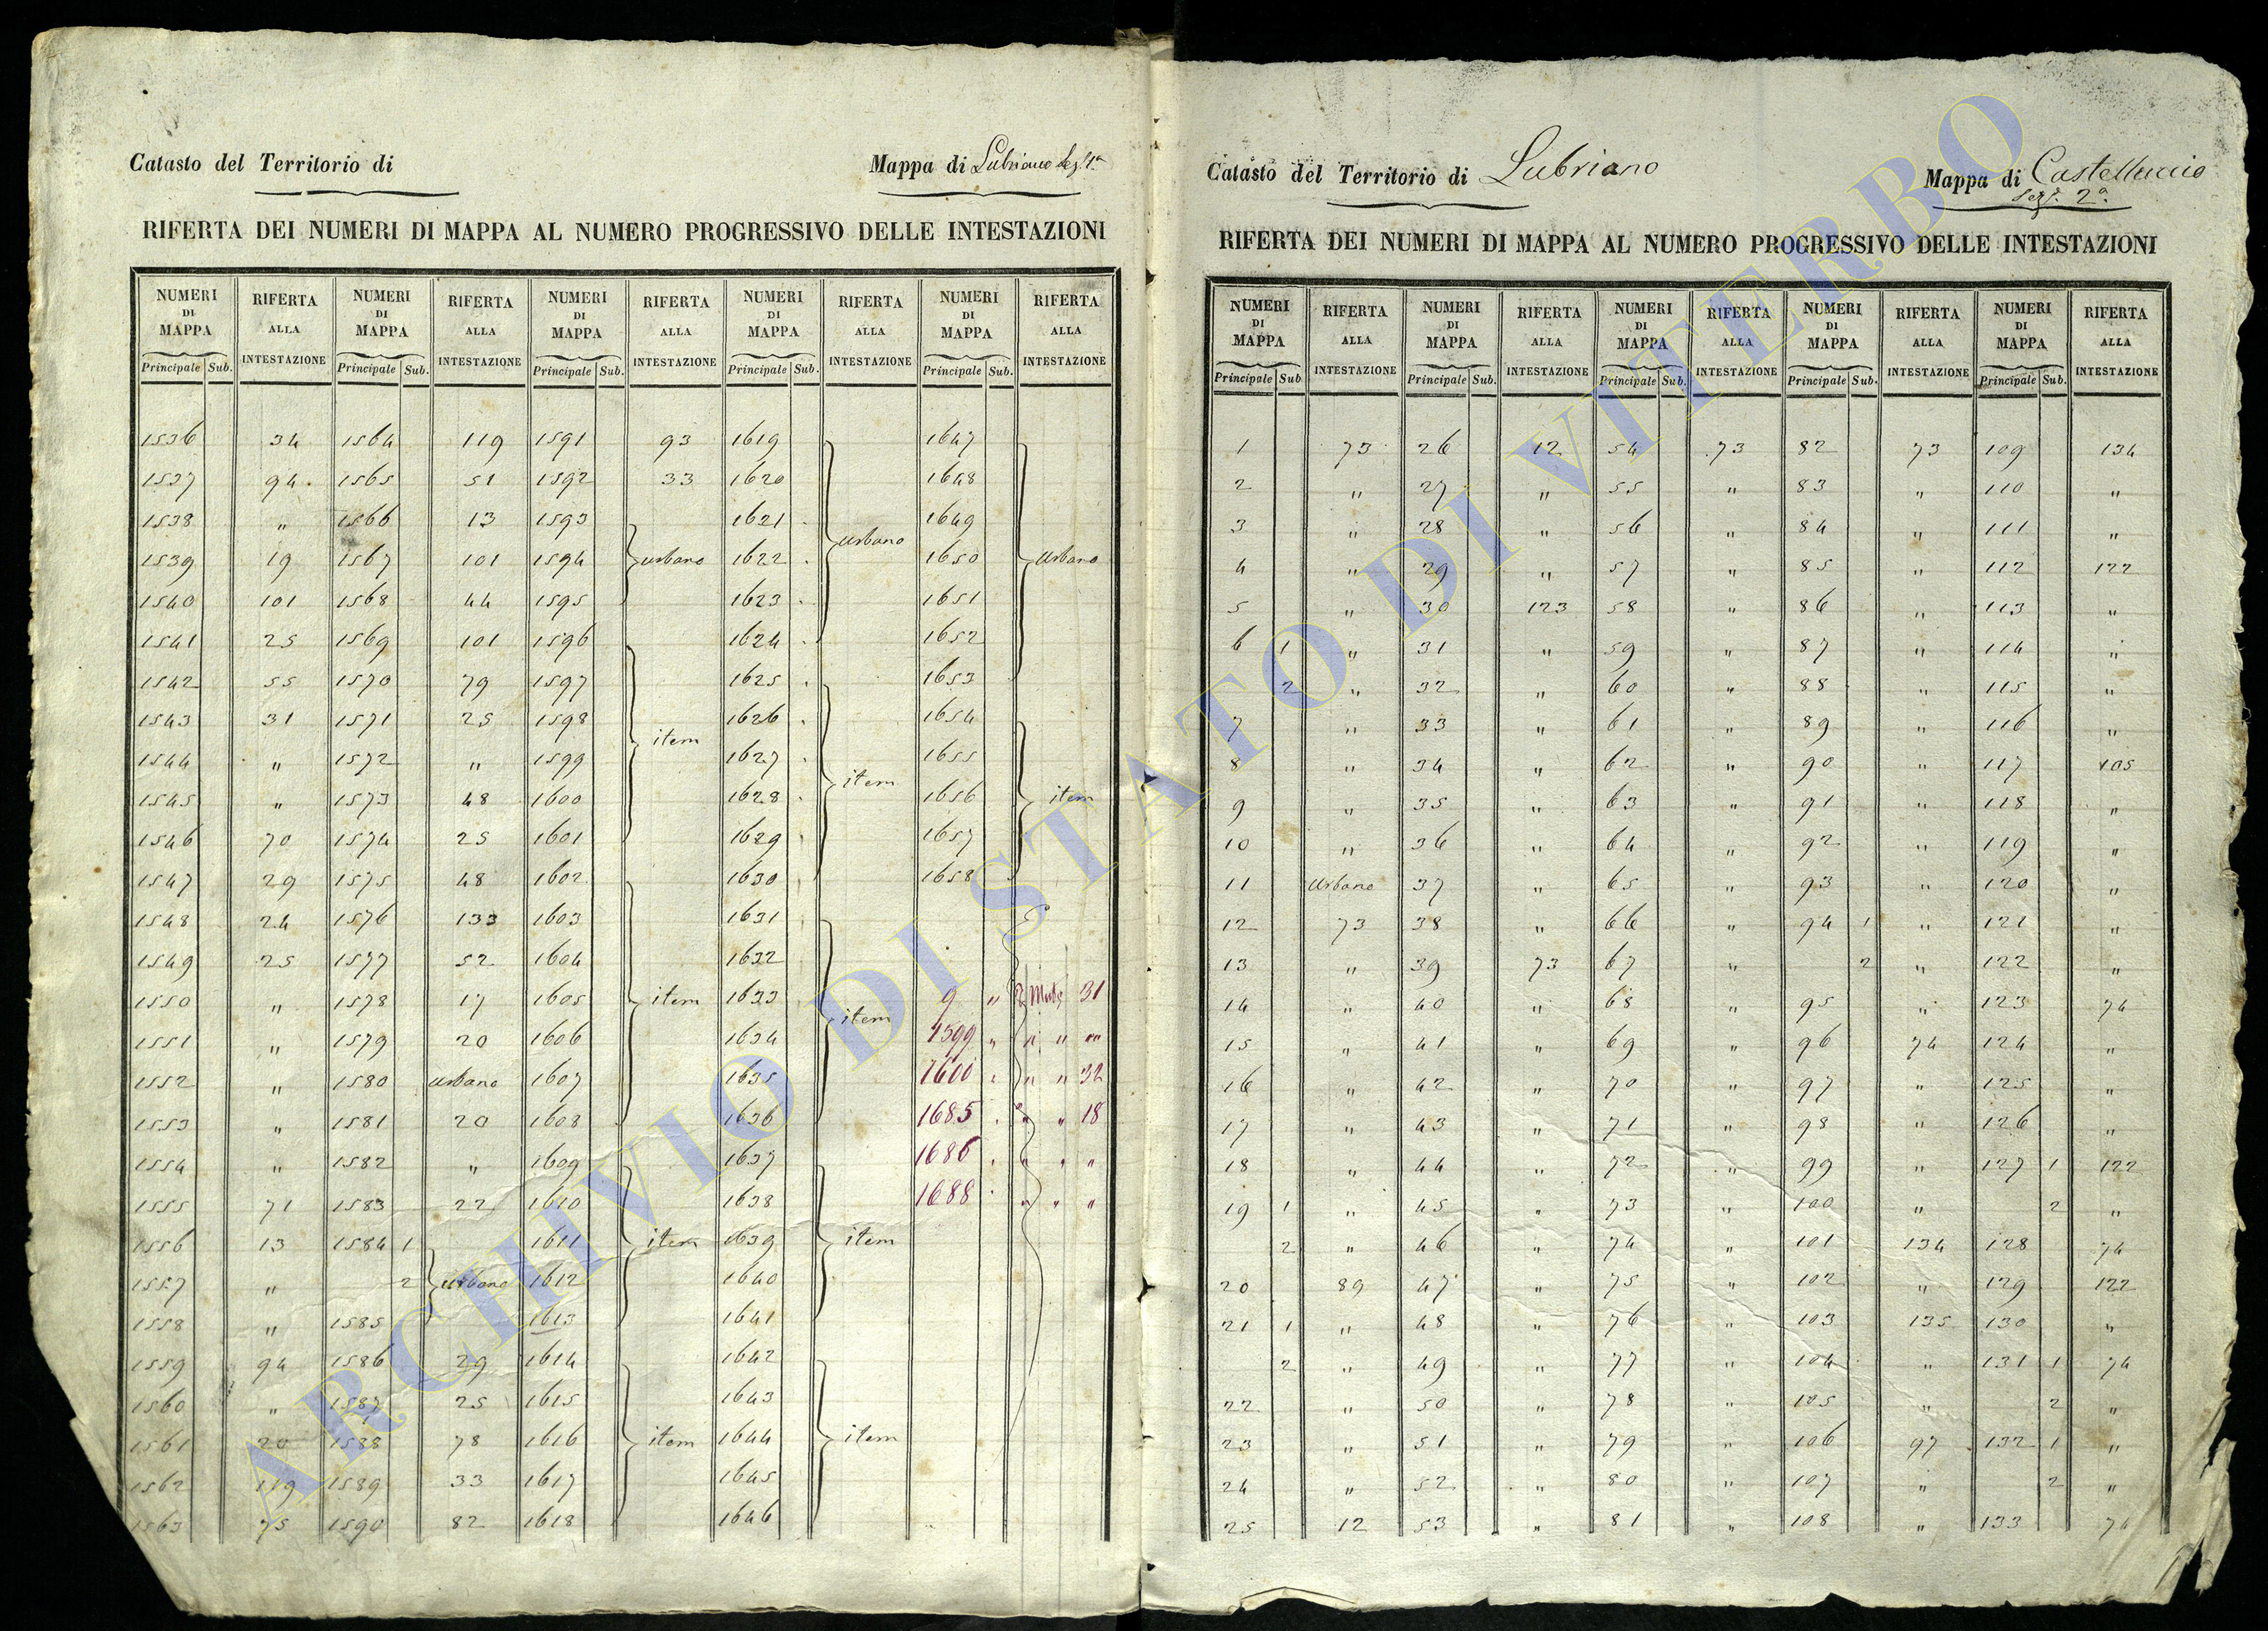 Catasto del Territorio di
Mappa di Lubriano Sez. 1a
RIFERTA DEI NUMERI DI MAPPA AL NUMERO PROGRESSIVO DELLE INTESTAZIONI
NUMERI DI MAPPA RIFERTA ALLA INTESTAZIONE NUMERI DI MAPPA RIFERTA ALLA INTESTAZIONE NUMERI DI MAPPA RIFERTA ALLA INTESTAZIONE NUMERI DI MAPPA RIFERTA ALLA INTESTAZIONE NUMERI DI MAPPA RIFERTA ALLA INTESTAZIONE
Principale Sub. Principale Sub. Principale Sub. Principale Sub. Principale Sub.
1536 34 1564 119 1591 93 1619 1647
1537 94 1565 51 1592 33 1620 1648
1538 " 1566 13 1593 1621 1649
1539 19 1567 101 1594 urbano 1622 urbano 1650 urbano
1540 101 1568 44 1595 1623 1651
1541 25 1569 101 1596 1624 1652
1542 55 1570 79 1597 1625 1653
1543 31 1571 25 1598 item 1626 1654
1544 " 1572 " 1599 1627 item 1655
1545 " 1573 48 1600 1628 1656 item
1546 70 1574 25 1601 1629 1657
1547 29 1575 48 1602 1630 1658
1548 24 1576 133 1603 1631
1549 25 1577 52 1604 1632
1550 " 1578 17 1605 item 1633 item 9 " 31
1551 " 1579 20 1606 1634 1599 " " " "
1552 " 1580 urbano 1607 1635 1600 " " 32
1553 " 1581 20 1608 1636 1685 " " 18
1554 " 1582 " 1609 1637 1686 " " "
1555 71 1583 22 1610 1638 1688 " " "
1556 13 1584 1 1611 item 1639 item
1557 " 2 urbano 1612 1640
1558 " 1585 1613 1641
1559 94 1586 29 1614 1642
1560 " 1587 25 1615 1643
1561 20 1588 78 1616 item 1644 item
1562 119 1589 33 1617 1645
1563 75 1590 82 1618 1646
Catasto del Territorio di Lubriano
Mappa di Castelluccio
Sez. 2a
RIFERTA DEI NUMERI DI MAPPA AL NUMERO PROGRESSIVO DELLE INTESTAZIONI
NUMERI DI MAPPA RIFERTA ALLA INTESTAZIONE NUMERI DI MAPPA RIFERTA ALLA INTESTAZIONE NUMERI DI MAPPA RIFERTA ALLA INTESTAZIONE NUMERI DI MAPPA RIFERTA ALLA INTESTAZIONE NUMERI DI MAPPA RIFERTA ALLA INTESTAZIONE
Principale Sub. Principale Sub. Principale Sub. Principale Sub. Principale Sub.
1 73 26 12 54 73 82 73 109 134
2 " 27 " 55 " 83 " 110 "
3 " 28 " 56 " 84 " 111 "
4 " 29 " 57 " 85 " 112 122
5 " 30 123 58 " 86 " 113 "
6 1 " 31 " 59 " 87 " 114 "
2 " 32 " 60 " 88 " 115 "
7 " 33 " 61 " 89 " 116 "
8 " 34 " 62 " 90 " 117 105
9 " 35 " 63 " 91 " 118 "
10 " 36 " 64 " 92 " 119 "
11 urbano 37 " 65 " 93 " 120 "
12 73 38 " 66 " 94 1 " 121 "
13 " 39 73 67 " 2 " 122 "
14 " 40 " 68 " 95 " 123 74
15 " 41 " 69 " 96 74 124 "
16 " 42 " 70 " 97 " 125 "
17 " 43 " 71 " 98 " 126 "
18 " 44 " 72 " 99 " 127 1 122
19 1 " 45 " 73 " 100 " 2 "
2 " 46 " 74 " 101 134 128 74
20 89 47 " 75 " 102 " 129 122
21 1 " 48 " 76 " 103 135 130 "
2 " 49 " 77 " 104 " 131 1 74
22 " 50 " 78 " 105 " 2 "
23 " 51 " 79 " 106 97 132 1 "
24 " 52 " 80 " 107 " 2 "
25 12 53 " 81 " 108 " 133 74
ARCHIVIO DI STATO DI VITERBO